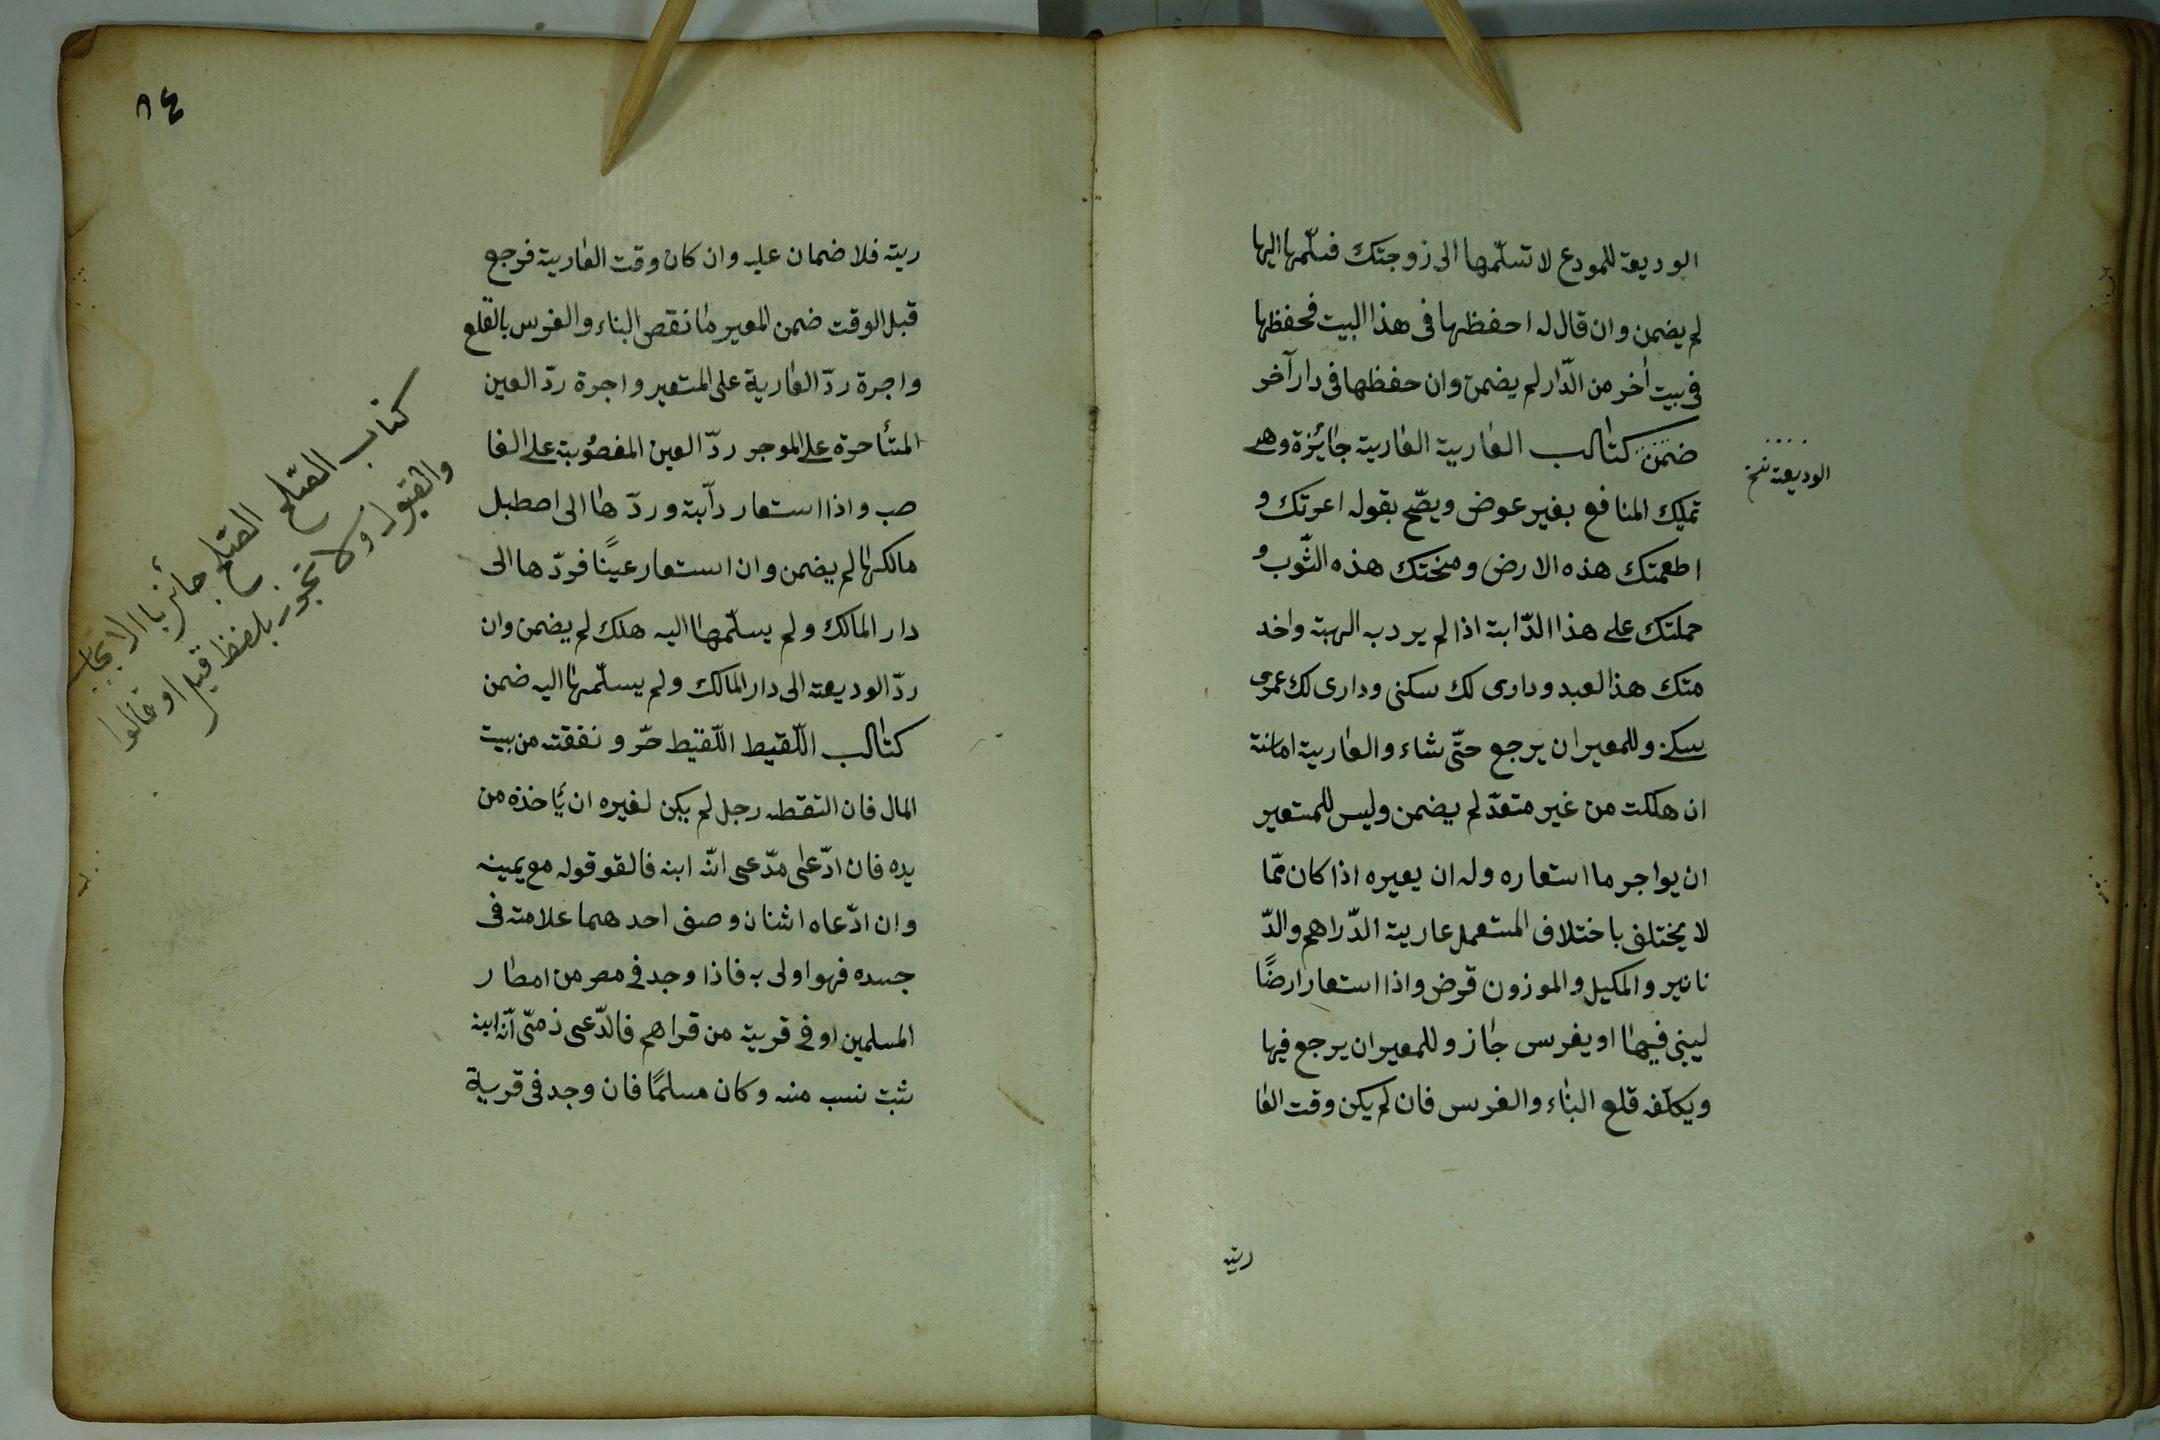 الوديعة للمودع لا تسلّمها الى زوجتك فسلّمها اليها
لم يضمن وان قال له احفظها فى هذا البيت فحفظها
فى بيت أخر من الدّار لم يضمن وان حفظها فى دار آخر
ضمن كتاب العارية العارية جائزة وهى
الوديعة نسخ
تمليك المنافع بغير عوض ويصّح بقوله اعرتك و
اطعمتك هذه الارض ومنحتك هذه الثّوب و
حملتك على هذا الدّابة اذا لم يرد به الهبة واخد
متك هذا العبد ودارى لك سكنى ودارى لك عمرى
سكنى وللمعير ان يرجع حتّى شاء والعارية امانة
ان هلكت من غير متعدّ لم يضمن وليس للمستعير
ان يواجر ما استعاره وله ان يعيره اذا كان ممّا
لا يختلف باختلاف المستعمل عارية الدّراهم والدّ
نانير والمكيل والموزون قرض واذا استعار ارضًا
ليبنى فيها او يغرس جاز وللمعير ان يرجع فيها
ويكلّفه قلع البناء والغرس فان لم يكن وقت العا
رية
٨٤
رية فلا ضمان عليه وان كان وقت العارية فرجع
قبل الوقت ضمن المعير ما نقص البناء والغرس بالقلع
واجرة ردّ العارية على المستعير واجرة ردّ العين
المستأجرة على الموجر ردّ العين المغصوبة على الغا
صب واذا استعار دآبة وردّها الى اصطبل
مالكها لم يضمن وان استعار عينًا فردّها الى
دار المالك ولم يسلّمها اليه هلك لم يضمن وان
ردّ الوديعة الى دار المالك ولم يسلّمها اليه ضمن
كتاب اللّقيط اللّقيط حرّ ونفقته من بيت
المال فان التقطه رجل لم يكن لغيره ان يأخذه من
يده فان ادّعى مدّعى انّه ابنه فالقو قوله مع يمينه
وان ادّعاه اثنان وصف احدهما علامة فى
جسده فهو اولى به فاذا وجد فى مصر من امصار
المسلمين او فى قرية من قراهم فالدّعى ذمّى انّه ابنه
ثبت نسبه منه وكان مسلمًا فان وجد فى قرية
كتاب الصّلح الصّلح جائز باالايجاب
والقبول ولا تجوز بلفظ قيل او قالوا